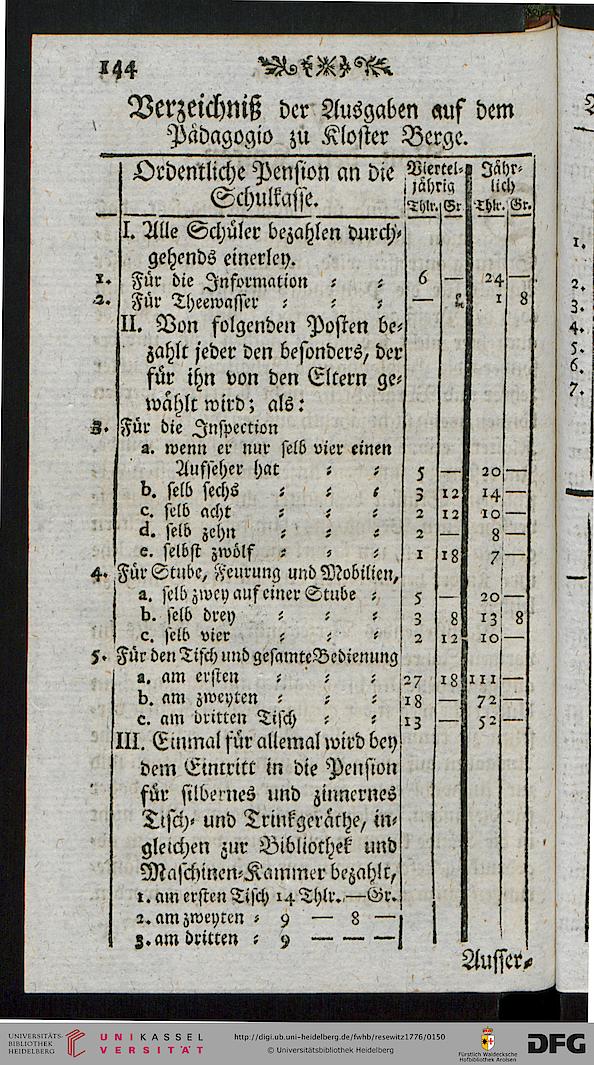 144
Verzeichniß der Ausgaben auf dem
Pädagogio zu Kloster Berge.
Ordentliche Pension an die Schulkasse. | Vierteljährig Thlr. Gr | Jährlich Thlr. Gr.
I. Alle Schüler bezahlen durch-
gehends einerley.
1. Für die Information 6 — 24 —
2. Für Theewasser — 8 1 8
II. Von folgenden Posten be-
zahlt jeder den besonders, der
für ihn von den Eltern ge-
wählt wird; als:
3. Für die Inspection
a. wenn er nur selb vier einen
Aufseher hat 5 — 20 —
b. selb sechs 3 12 14 —
c. selb acht 2 12 10 —
d. selb zehn 2 — 8 —
e. selbst zwölf 1 18 7 —
4. Für Stube, Feurung und Mobilien,
a. selb zwey auf einer Stube 5 — 20 —
b. selb drey 3 8 13 8
c. selb vier 2 12 10 —
5. Für den Tisch und gesamte Bedienung
a. am ersten 27 18 111 —
b. am zweyten 18 — 72 —
c. am dritten Tisch 13 — 52 —
III. Einmal für allemal wird bey
dem Eintritt in die Pension
für silbernes und zinnernes
Tisch- und Trinkgeräthe, in-
gleichen zur Bibliothek und
Maschinen-Kammer bezahlt,
1. am ersten Tisch 14 Thlr. — Gr.
2. am zweyten 9 — 8 —
3. am dritten 9 — — —
Ausser-
1.
2.
3.
4.
5.
6.
7.
UNIVERSITÄTS-
BIBLIOTHEK
HEIDELBERG
UNIKASSEL
VERSITÄT
http://digi.ub.uni-heidelberg.de/fwhb/resewitz1776/0150
© Universitätsbibliothek Heidelberg
Fürstlich Waldecksche
Hofbibliothek Arolsen
DFG